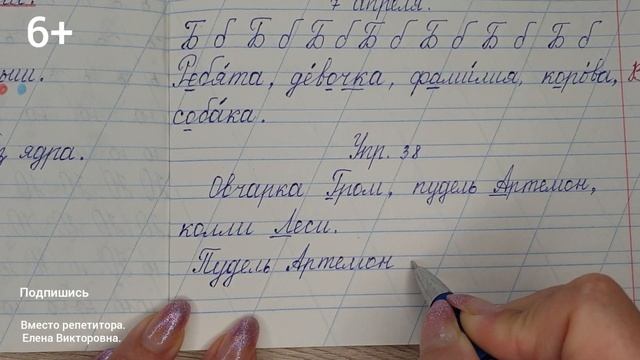 6+
7 апреля.
Б б Б б Б б Б б Б б Б б Б б
Ребята, девочка, фамилия, корова,
собака.
ядра.
Упр. 38
Овчарка Гром, пудель Артемон,
колли Леси.
Пудель Артемон
Подпишись
Вместо репетитора.
Елена Викторовна.